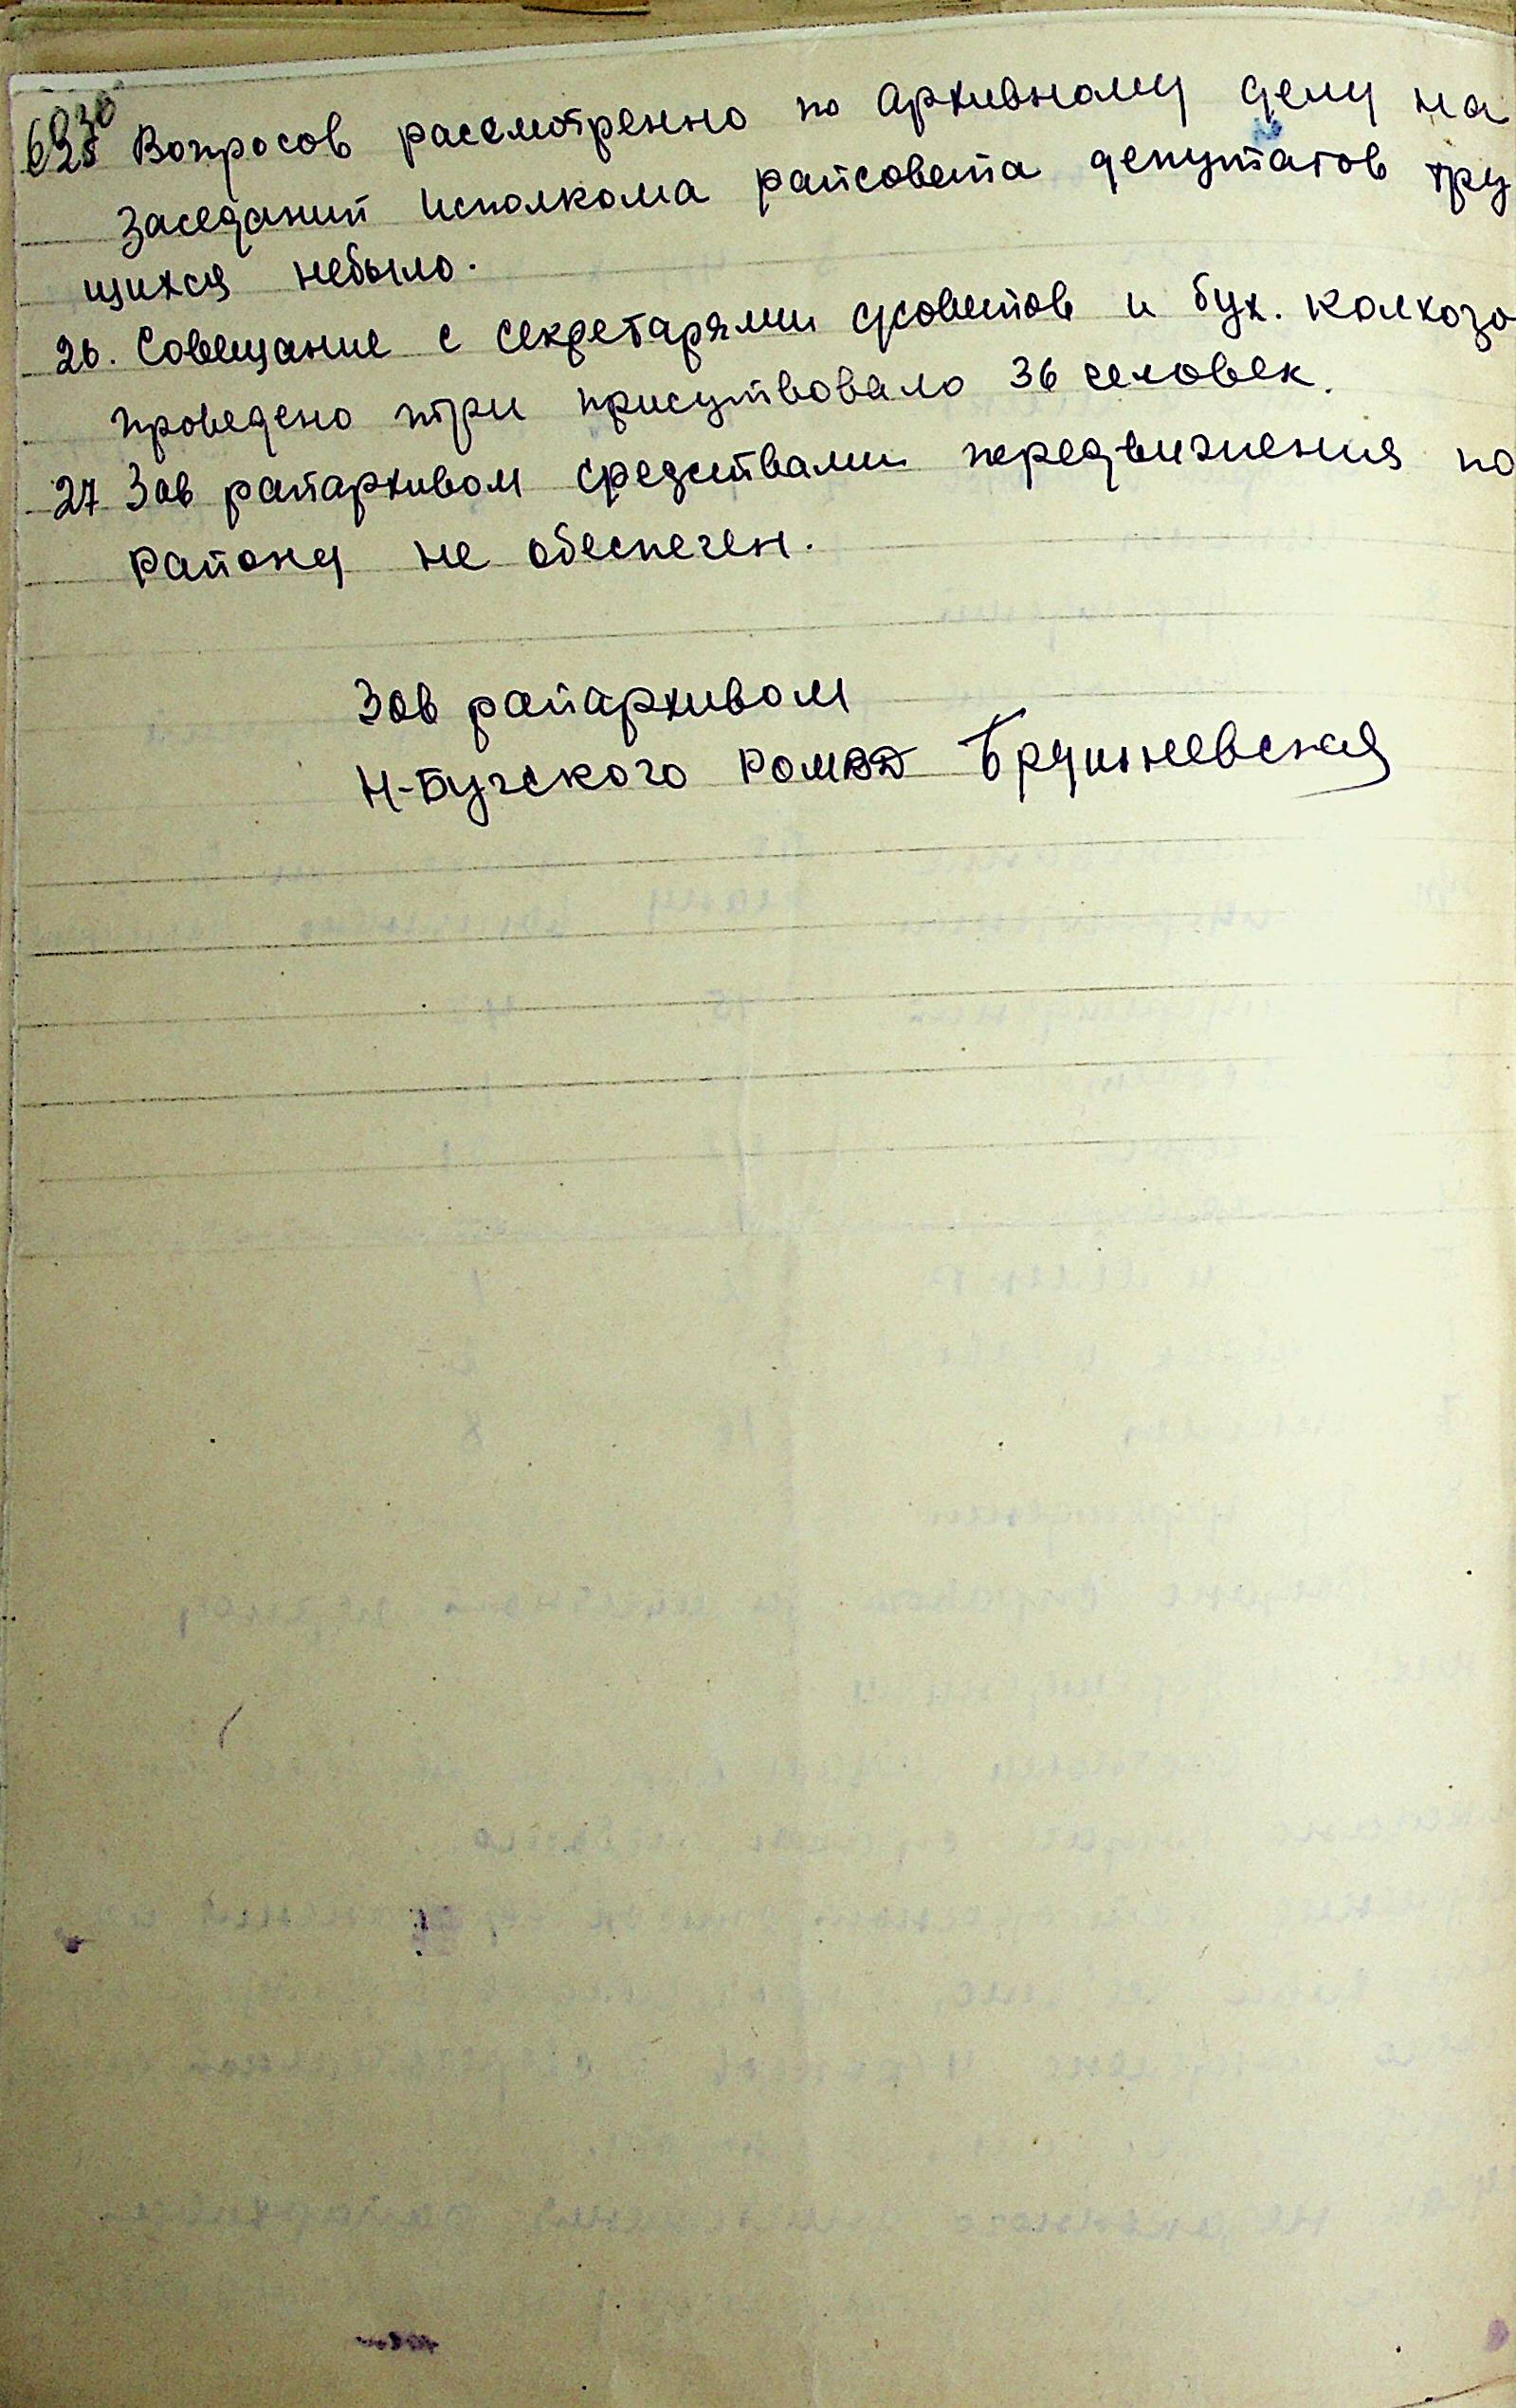 25 Вопросов рассмотренно по архивному делу на
заседаний исполкома райсовета депутатов тру
щихся небыло.
26. Совещание с секретарями с/советов и бух. колхозо
проведено три присутвовало 36 человек.
27 Зав райархивом средствами передвижения по
району не обеспечен.
Зав райархивом
Н-Бугского РОМВД